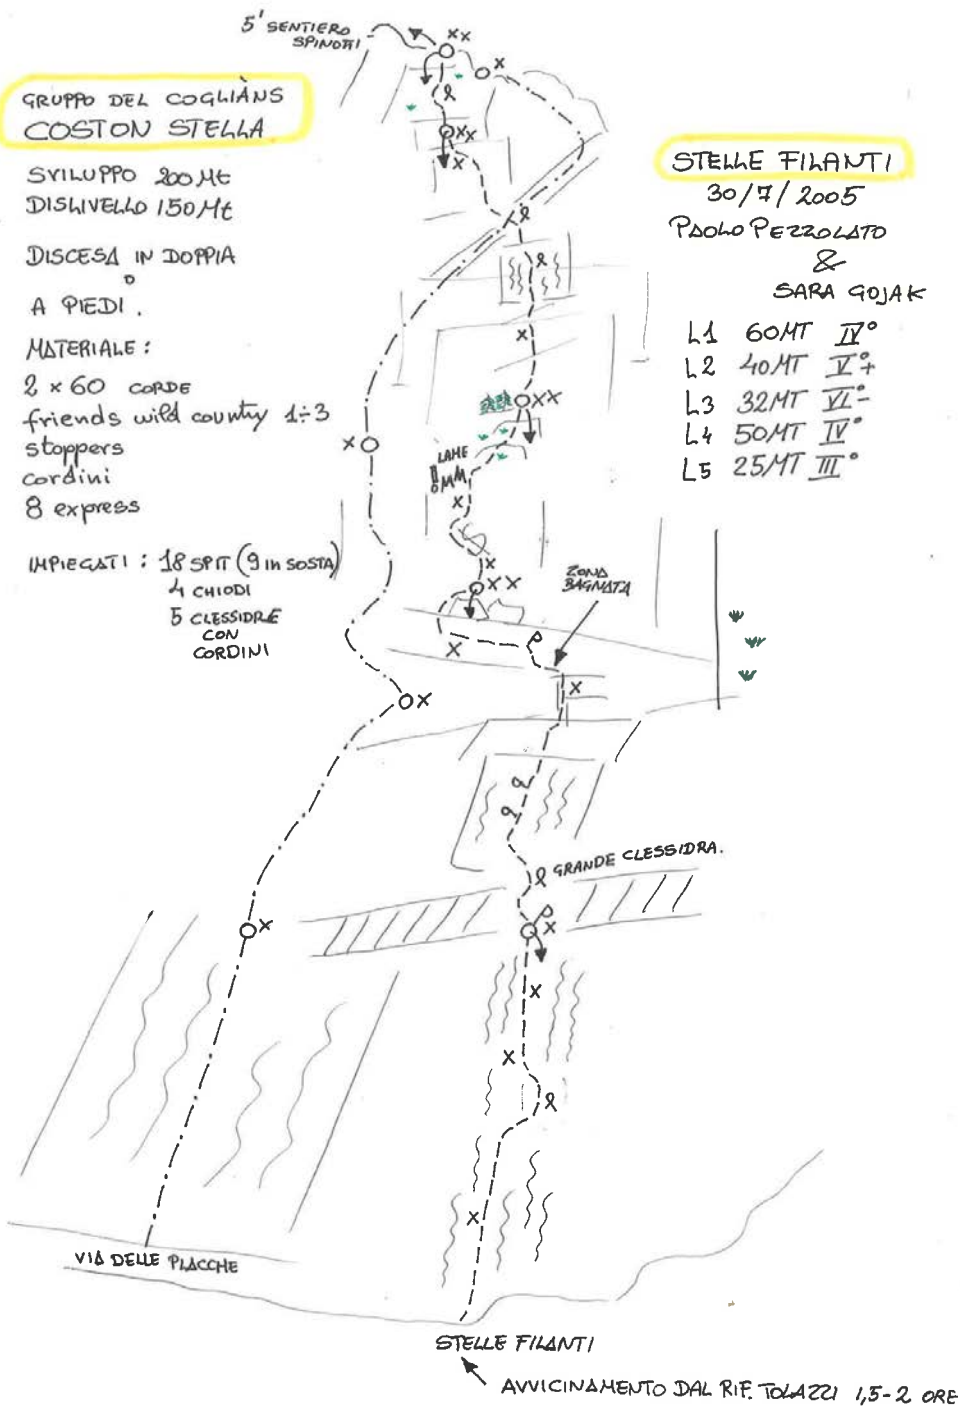 5' SENTIERO
SPINOTTI
GRUPPO DEL COGLIÀNS
COSTON STELLA
SVILUPPO 200 Mt
DISLIVELLO 150 Mt
DISCESA IN DOPPIA
O
A PIEDI.
MATERIALE:
2 x 60 CORDE
friends wild county 1÷3
stoppers
cordini
8 express
IMPIEGATI: 18 SPIT (9 in SOSTA)
4 CHIODI
5 CLESSIDRE
CON
CORDINI
STELLE FILANTI
30/7/2005
PAOLO PEZZOLATO
&
SARA GOJAK
L1 60MT IV°
L2 40MT V°+
L3 32MT VI°-
L4 50MT IV°
L5 25MT III°
LAME
ZONA
BAGNATA
GRANDE CLESSIDRA.
VIA DELLE PLACCHE
STELLE FILANTI
AVVICINAMENTO DAL RIF. TOLAZZI 1,5-2 ORE